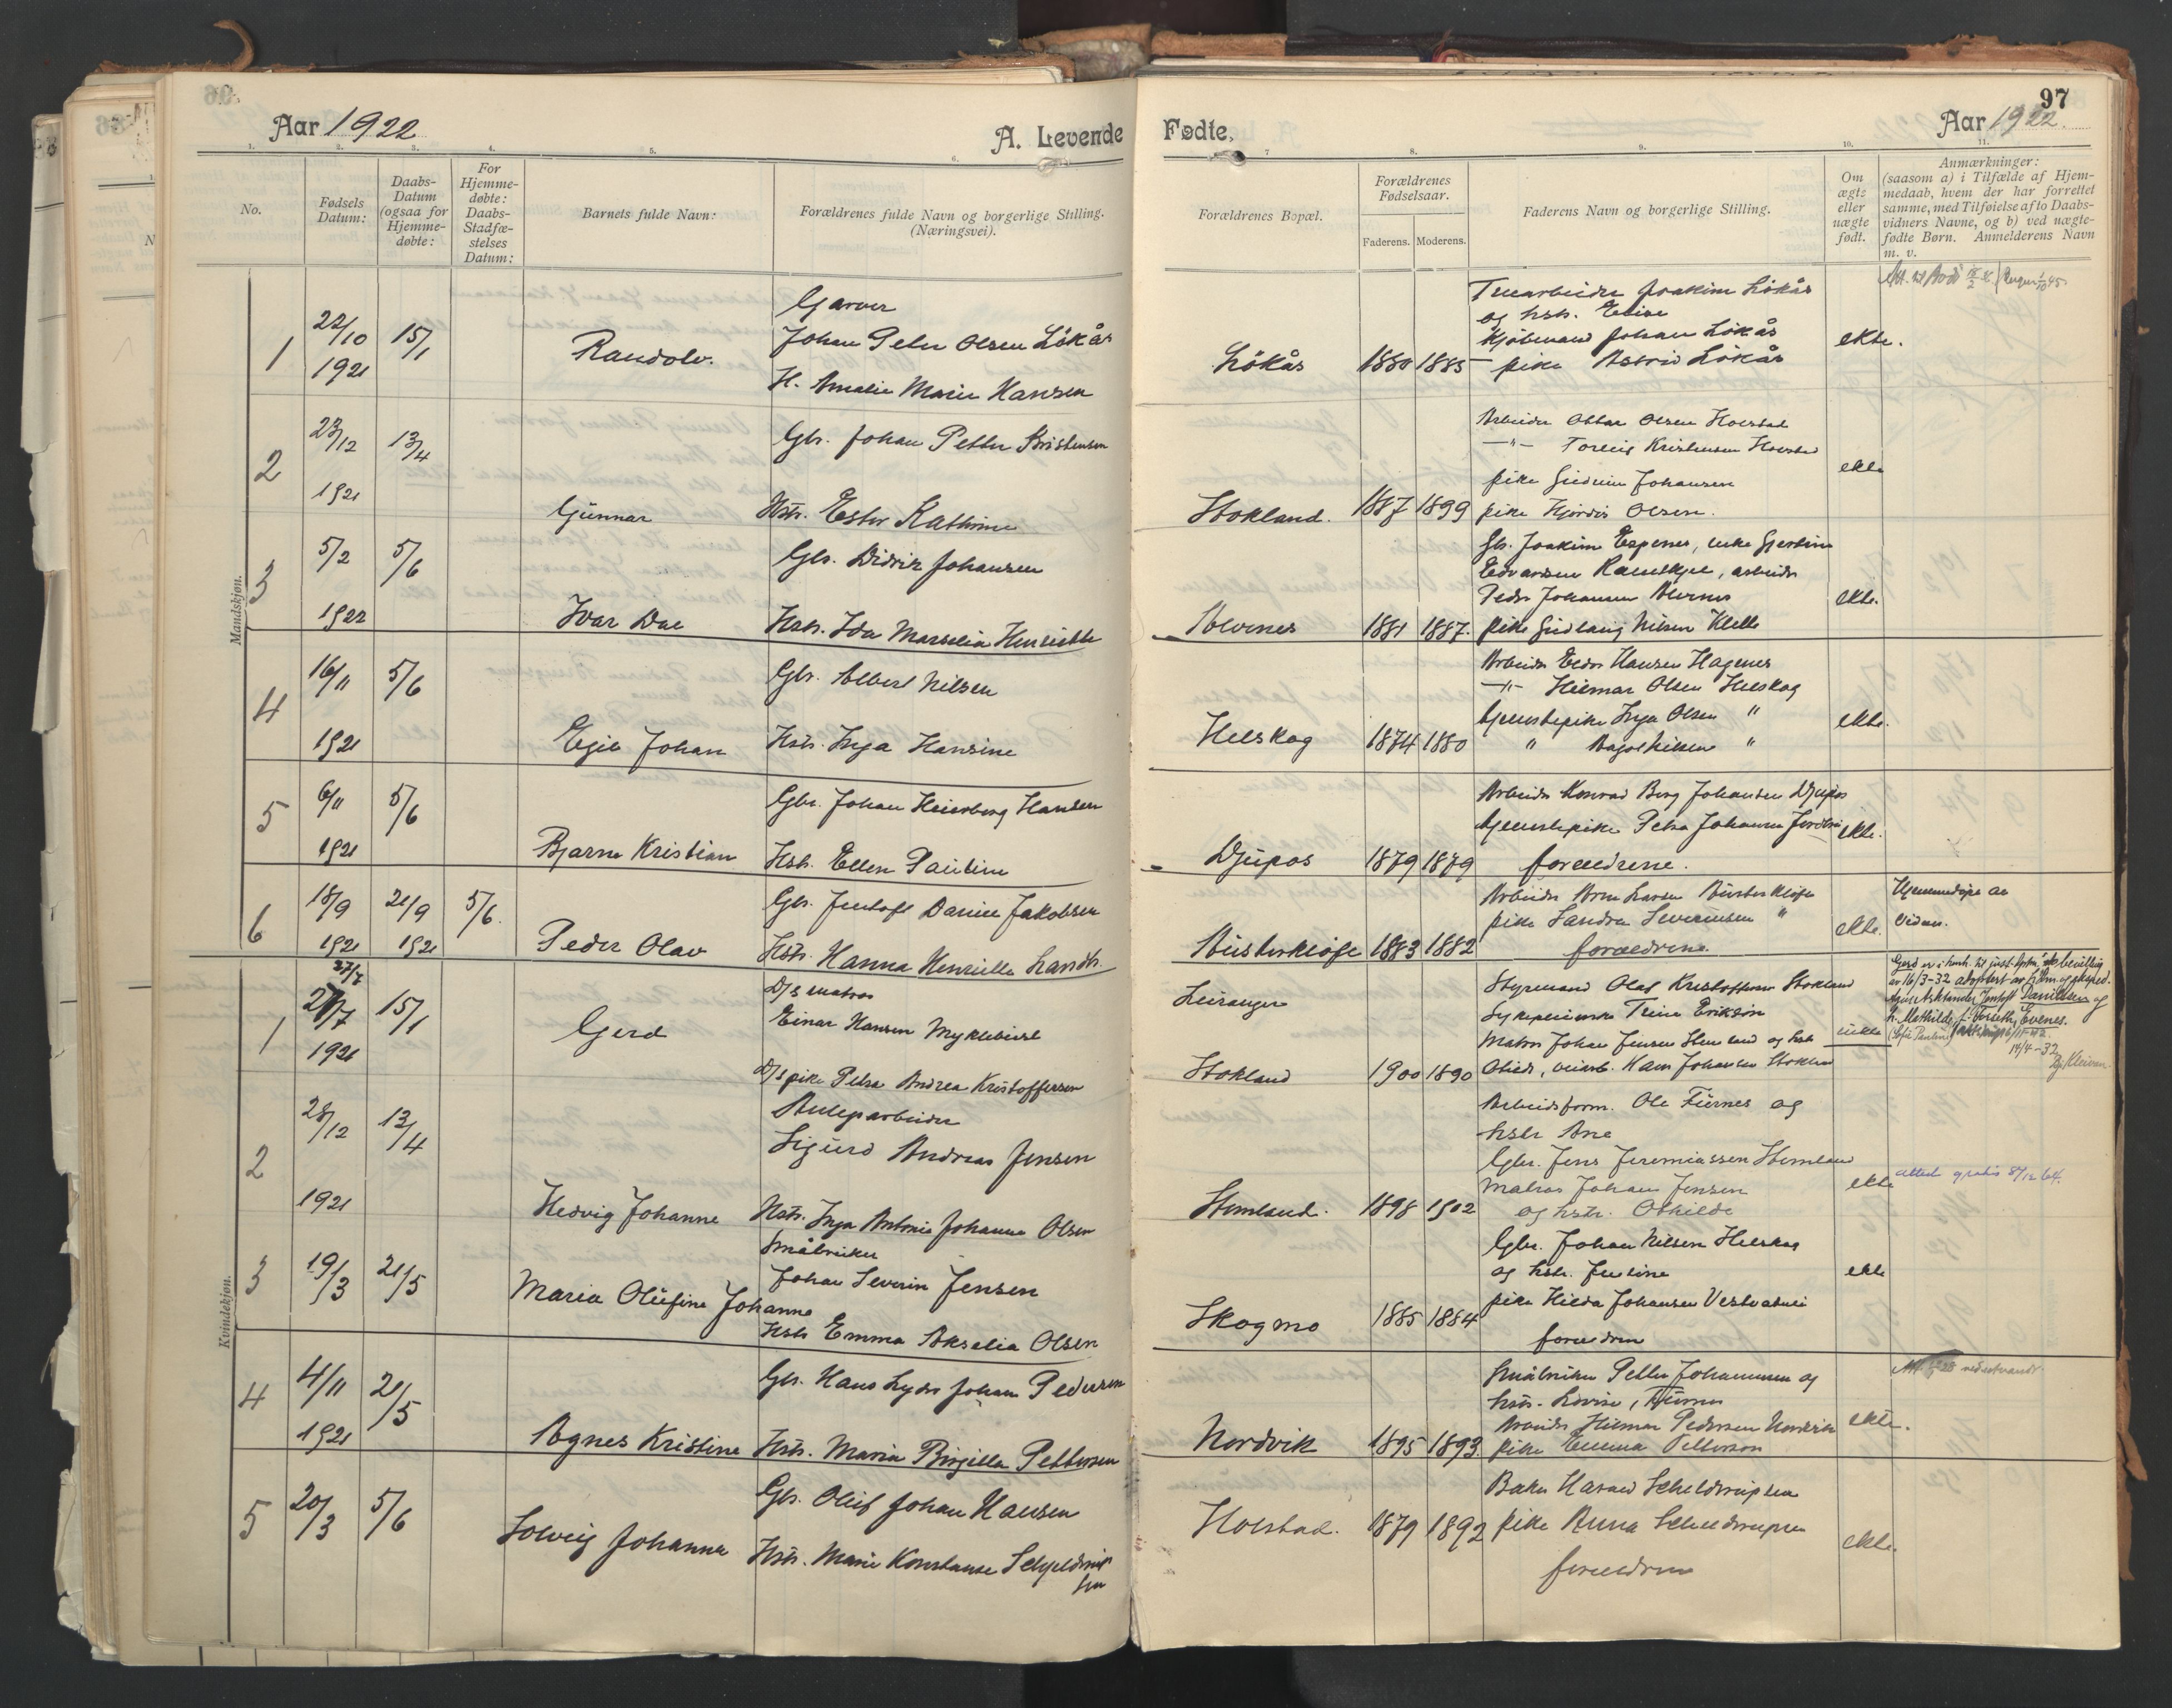 Aar 1922
A. Levende
Fødte,
97
Aar 1922.
1. 2. 3. 4. 5. 6. 7 8. 9. 10. 11.
No.
Fødsels Datum:
Daabs-
Datum
(ogsaa for
Hjemme-
døbte:
For
Hjemme-
døbte:
Daabs-
Stadfæ-
stelses
Datum:
Barnets fulde Navn:
Forældrenes fulde Navn og borgerlige Stilling.
(Næringsvei).
Forældrenes Bopæl.
Forældrenes
Fødselsaar.
Faderens. Moderens.
Faderens Navn og borgerlige Stilling.
Om
ægte
eller
uægte
født.
Anmærkninger:
(saasom a) i Tilfælde af Hjem-
medaab, hvem der har forrettet
samme, med Tilføielse af to Daabs-
vidners Navne, og b) ved uægte-
fødte Børn. Anmelderens Navn
m. v.
Mandskjøn.
1
22/10
1921
15/1
Randolv.
Garver
Johan Peter Olsen Lökås
H. Amalie Marie Hansen
Lökås
1880 1885
Trearbeider Joakim Lökås
og hstr. Elise
Kjöbmand Johan Lökås
pike Astrid Lökås
ekte.
2
23/12
1921
13/4
Gunnar
Gbr. Johan Petter Kristensen
Hstr. Ester Kathrine
Stokland.
1887 1899
Arbeider Ottar Olsen Holstad
—"— Torleif Kristensen Holstad
pike Gudrun Johansen
pike Hjördis Olsen.
ekte
3
5/2
1922
5/6
Ivar Dal
Gbr. Didrik Johansen
Hstr. Ida Marselia Henriette
Alvenes
1881 1887.
Gb. Joakim Espenes, enke Gjertine
Edvardsen Ramskjel, arbeider
Peder Johansen Alvenes
pike Gudlaug Nilsen KleLle
ekte.
4
16/11
1921
5/6
Egil Johan
Gbr. Albert Nilsen
Hstr. Inga Hansine
Helskog
1874 1880
Arbeider Edor Hansen Hagenes
—"— Hilmar Olsen Helskog
tjenestepike Inga Olsen "
" Nilsen "
ekte.
5
6/11
1921
5/6
Bjarne Kristian
Gbr. Johan Heiberg Hansen
Hstr. Ellen Pauline
Djupos
1879 1879
Arbeider Konrad Berg Johansen Djupos
tjenestepike Petra Johansen
forældrene.
ekte.
6
18/9
1921
21/9
1921
5/6.
Peder Olav
Gbr. Jentoft Daniel Jakobsen
Hstr. Hanna Henriette
1883 1882
Arbeider Arne Larsen
pike Sandra Severinsen "
forældrene
ekte.
Hjemmedøpt av
Kvindekjøn.
1
27/7
27/7
1921
15/1
Gerd
D/s matros
Einar Hansen Myklebust
D/s pike Petra Andrea Kristoffersen
Leiranger
Stokland
1900 1890
Styrmand Olaf Kristoffersen Stokland
Sykepleierske Trine Erikson
Matros Johan Jensen Stemland og hstr
Otilde, Hans Johansen Stokland
uekte
Gerd er i henh. til just.dptm's bevilling
av 16/3-32 adoptert av
Jentoft Danielsen og
h. Mathilde f. Forseth, Evenes.
14/4-32
Kleiven.
2
28/12
1921
13/4
Hedvig Johanne
Anlegsarbeider
Sigurd Andreas Jensen
Hstr. Inga Antonie Johanne Olsen
Stemland.
1898 1902
Arbeidsform. Ole Furnes og
hstr Ane
Gbr. Jens Jeremiassen Stemland
Matros Johan Jensen
og hstr. Othilde
ekte
attest gratis 8/12 64.
3
19/3
21/5
Maria Olufine Johanne
Småbruker
Johan Severin Jensen
Hstr Emma Akselia Olsen
Skogmo
1885 1884
Gbr. Johan Nilsen Helskog
og hstr. Justine
pike Hilda Johansen
forældrene
ekte
4
4/11
1921
21/5
Agnes Kristine
Gbr. Hans Lyder Johan Pedersen
Hstr. Maria Birgitta Pettersen
Nordvik
1895 1893.
Småbruker Petter Johannesen og
hstr. Lovise, Furnes
Arbeider Hilmar Pedersen Nordvik
pike Emma Pettersen
ekte.
5
20/3
5/6
Solveig Johanna
Gbr. Oluf Johan Hansen
Hstr. Marie Konstanse Schjeldrup
sen
Holstad.
1879 1892
Baker Harald Scheldrupsen
pike Anna Scheldrupsen
forældrene
ekte.